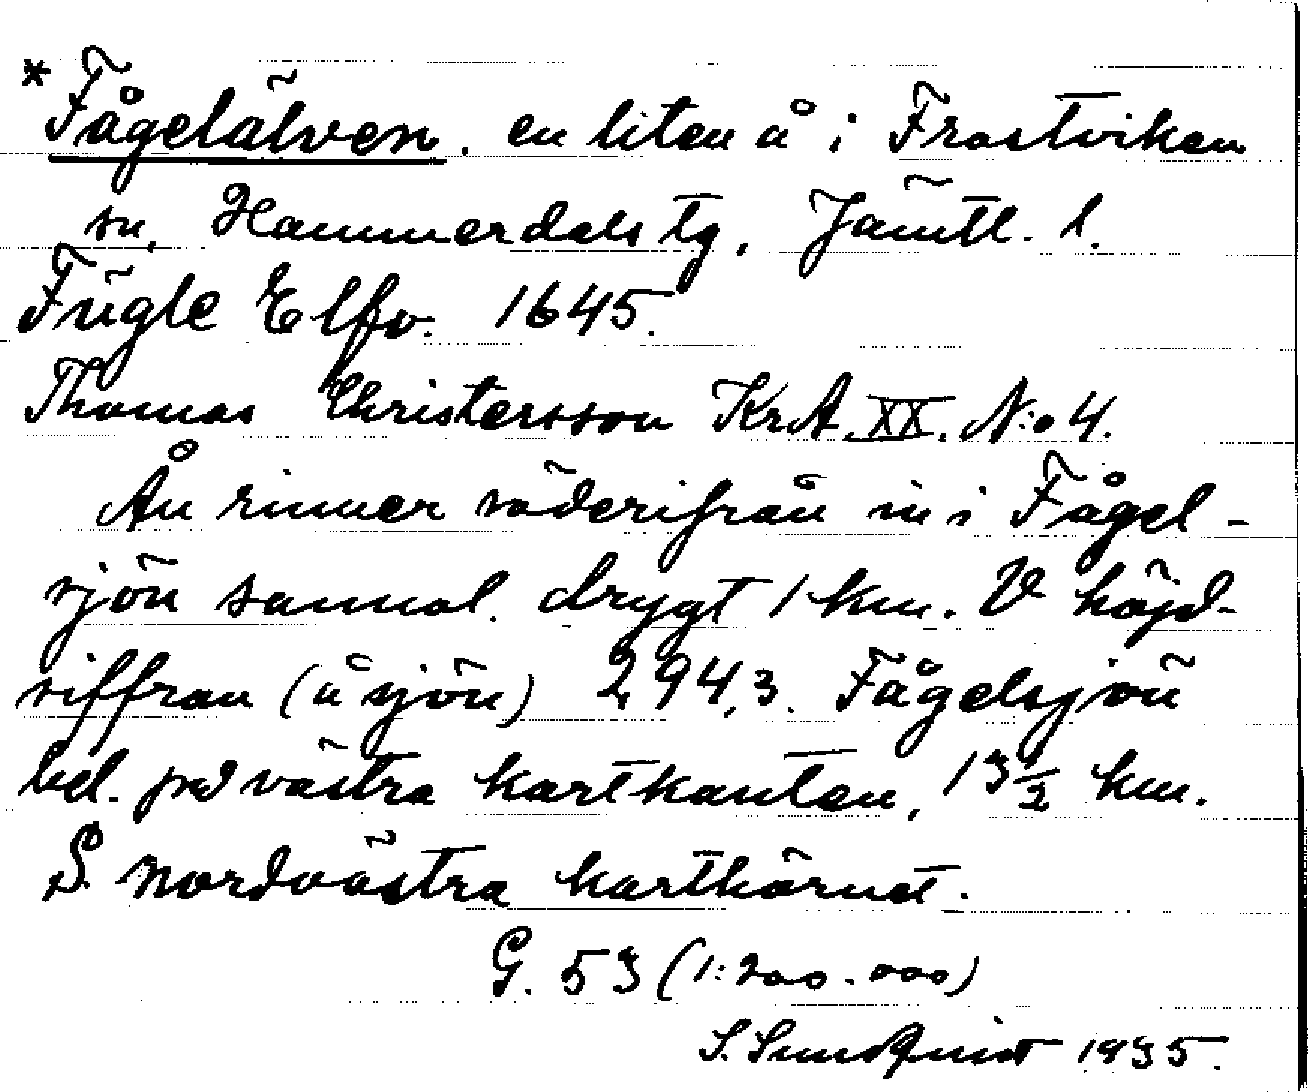 * Fågelälven. en liten å i Frostviken
sn, Hammerdals tg, Jämtl. l.
Fügle Elfv. 1645.
Thomas Christersson KrA. XX. N:o 4.
Ån rinner söderifrån in i Fågel-
sjön samt drygt 1 km. V höjd-
siffran (å sjön) 294,3. Fågelsjön
bel. på västra kartkanten, 13 1/2 km.
S. nordvästra karthörnet.
G. 53 (1:200.000)
S. Sundquist 1935.